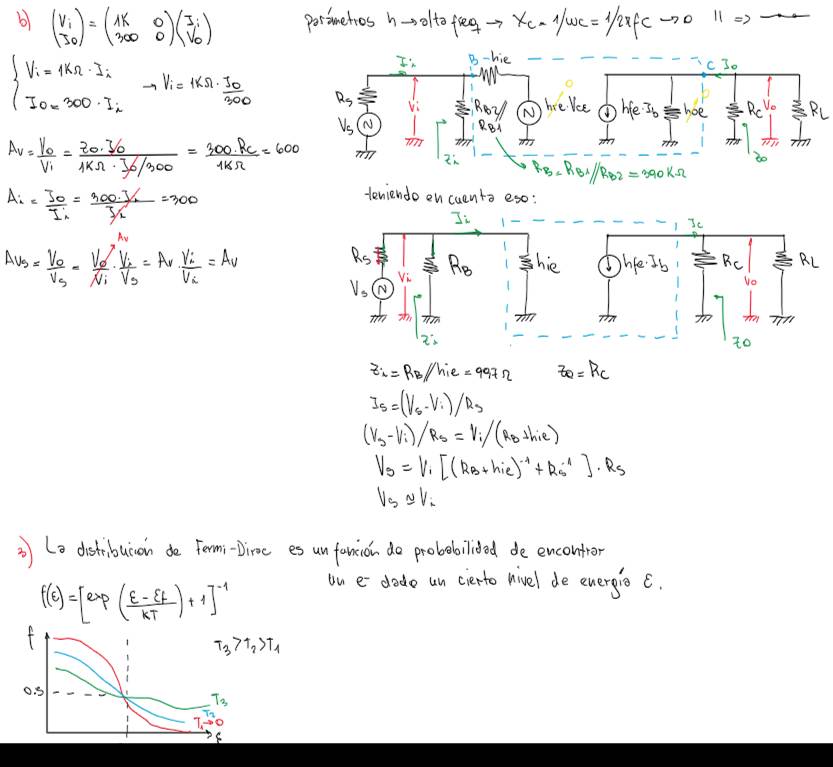 b) (Vi Io) = (1K 0 300 0)(Ii Vo)
{ Vi = 1KΩ · Ii
Io = 300 · Ii
→ Vi = 1KΩ · Io/300
Av = Vo/Vi = Zo·Io / 1KΩ · Io/300 = 300·Rc/1KΩ = 600
Ai = Io/Ii = 300·Ii/Ii = 300
Avs = Vo/Vs = Vo/Vi · Vi/Vs = Av · Vi/Vi = Av
Av
parámetros h → alta freq → Xc = 1/ωC = 1/2πfC → 0 || =>
Ii B hie C Io
Rs Vs Vi RB2// RB1 hre·Vce 0 hfe·Ib hoe 0 Rc Vo RL
Zi Zo
RB = RB1//RB2 = 390KΩ
teniendo en cuenta eso:
Ii Ic
Rs Vs Vi RB hie hfe·Ib Rc Vo RL
Zi Zo
Zi = RB//hie = 997Ω Zo = Rc
Is = (Vs-Vi)/Rs
(Vs-Vi)/Rs = Vi/(RB+hie)
Vs = Vi [(RB+hie)⁻¹ + Rs⁻¹] · Rs
Vs ≃ Vi
3) La distribución de Fermi-Dirac es un función de probabilidad de encontrar
un e⁻ dado un cierto nivel de energía ε.
f(ε) = [exp((ε - εf)/KT) + 1]⁻¹
f
T3 > T2 > T1
0.5
T3
T2
T1→0
ε